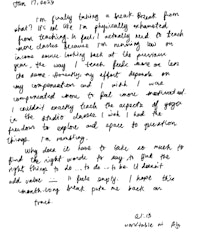 Jan 17, 2024
I'm finally taking a break from
what? It's not like I'm physically exhausted
from teaching. In fact, I actually need to teach
more classes because I'm running low on
income source. Looking back at the previous
year, the way I teach feels more or less
the same. Honestly, my effort depends on
my compensation and I wish I was
compensated more to feel more motivated.
I couldn't exactly teach the aspects of yoga
in the studio classes I wish I had the
freedom to explore and space to question
things. I'm venting.
Why does it have to take so much to
find the right words to say, to find the
right things to do ... to do ... to be. It doesn't
add value — it feels empty. I hope this
month-long break puts me back on
track.